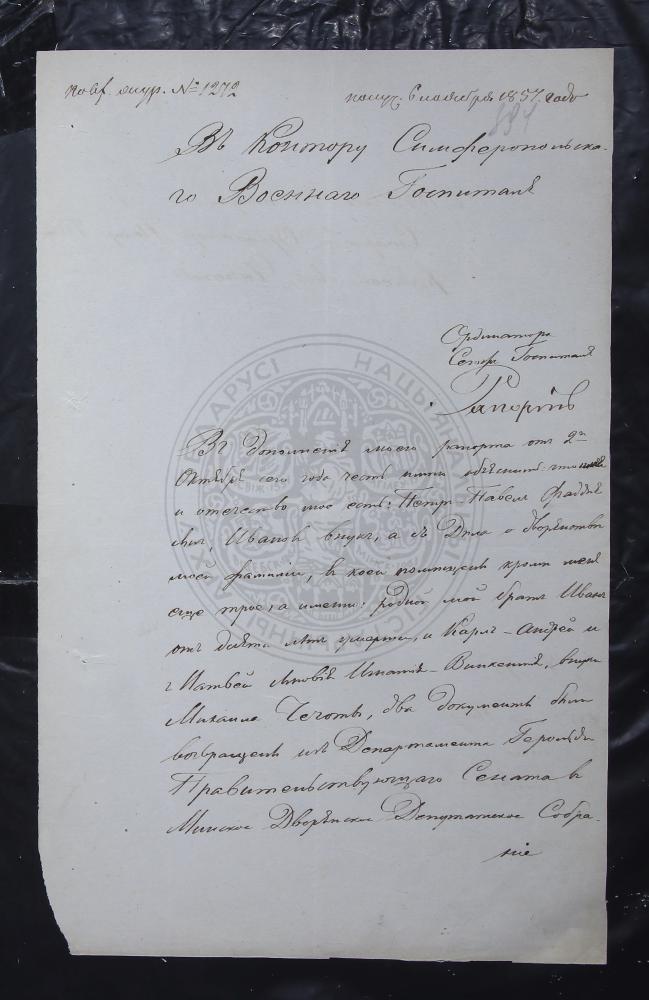 № 1272
получ. 6 ноября 1857 годо
894
Въ Контору Симферопольска-
го Военнаго Госпиталя
Ординатора
Симф Госпиталя
Рапортъ
Въ дополненіе моего рапорта отъ 2го
Октября сего года честь имею объяснить: что имя
и отечество мое есть: Петръ-Павелъ Фадѣе
вичъ, Ивановъ внукъ, а въ Дѣле о дворянстве
моей фамиліи, в коей помѣщены кроме меня
еще трое, а именно: родной мой братъ Иванъ
отъ лѣтъ умершій, и Карлъ-Андрей и
Матвей Игнатій-Викентій, внуки
Михаила Чечоты, два документа были
возвращены изъ Департамента Герольдіи
Правительствующаго Сената в
Минское Дворянское Депутатское Собра-
ніе
БЕЛАРУСІ НАЦЫЯНАЛЬНЫ ГІСТАРЫЧНЫ АРХІЎ